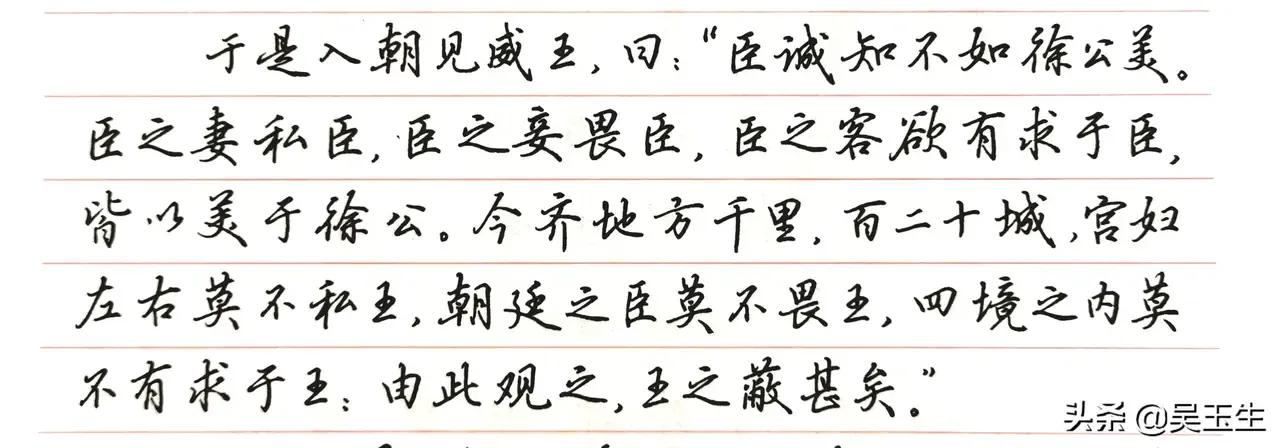 于是入朝见威王,曰:“臣诚知不如徐公美。
臣之妻私臣,臣之妾畏臣,臣之客欲有求于臣,
皆以美于徐公。今齐地方千里,百二十城,宫妇
左右莫不私王,朝廷之臣莫不畏王,四境之内莫
不有求于王:由此观之,王之蔽甚矣。”
头条 @吴玉生